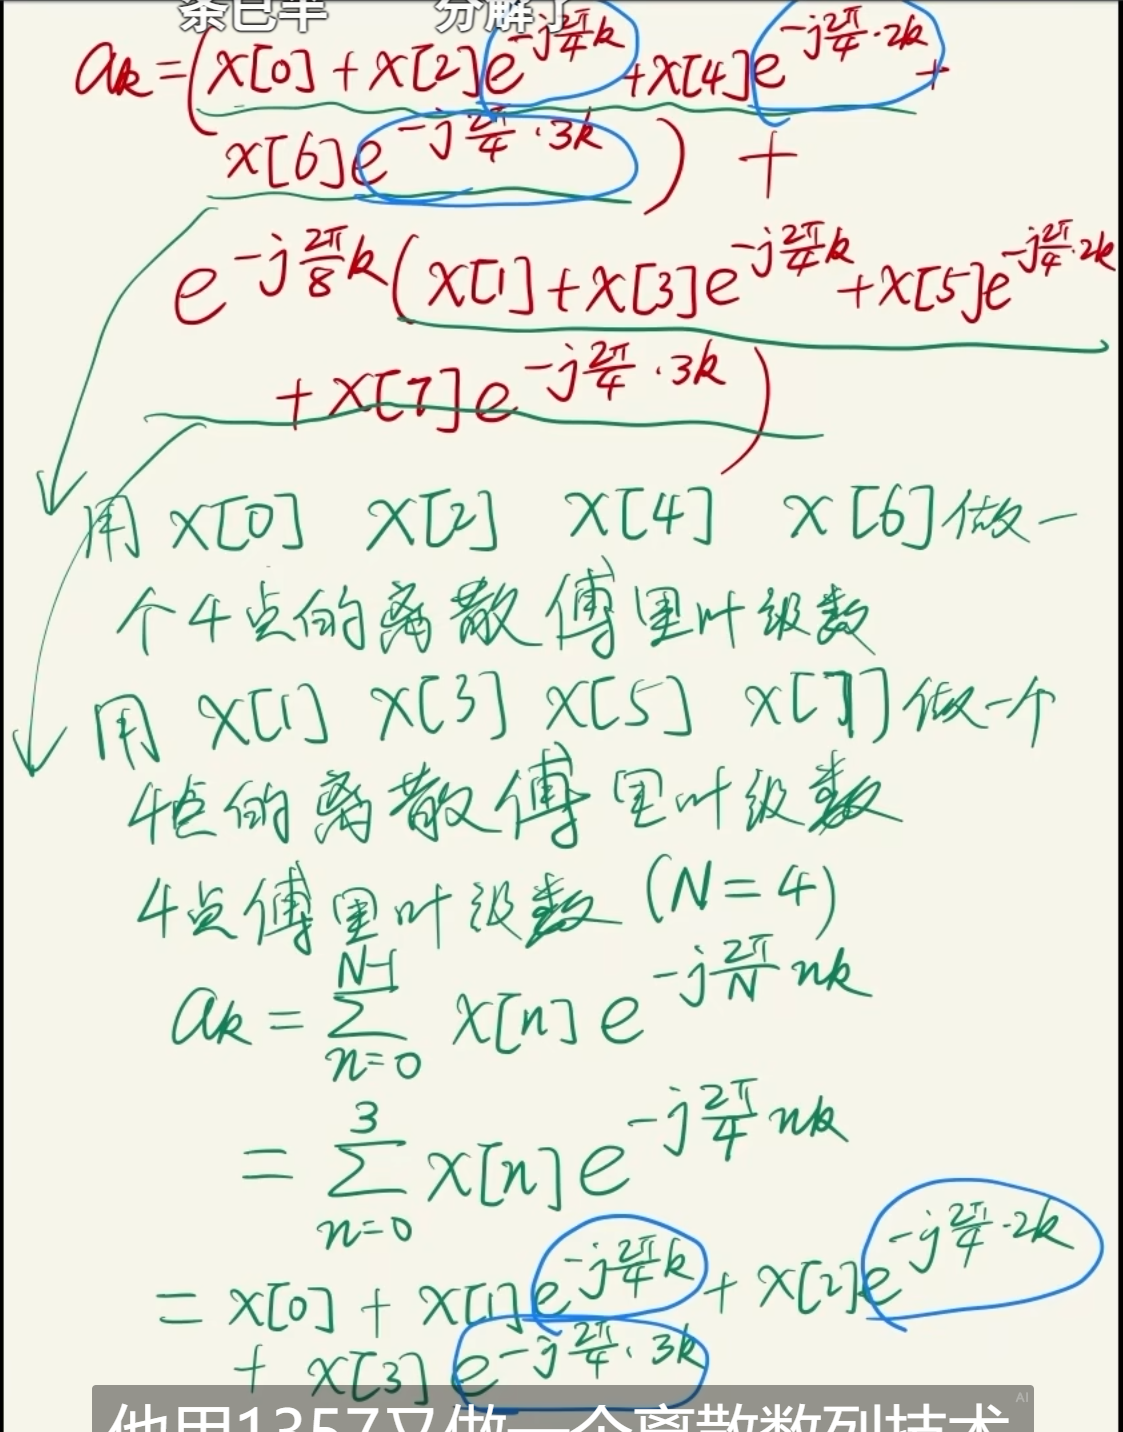 条已半 分解了
aₖ = (x[0] + x[2]e^{-j2π/4 k} + x[4]e^{-j2π/4·2k} +
x[6]e^{-j2π/4·3k}) +
e^{-j2π/8 k}(x[1] + x[3]e^{-j2π/4 k} + x[5]e^{-j2π/4·2k}
+ x[7]e^{-j2π/4·3k})
用 x[0] x[2] x[4] x[6] 做一
个4点的离散傅里叶级数
用 x[1] x[3] x[5] x[7] 做一个
4点的离散傅里叶级数
4点傅里叶级数 (N=4)
aₖ = ∑_{n=0}^{N-1} x[n] e^{-j2π/N nk}
= ∑_{n=0}^{3} x[n] e^{-j2π/4 nk}
= x[0] + x[1]e^{-j2π/4 k} + x[2]e^{-j2π/4·2k}
+ x[3]e^{-j2π/4·3k}
AI
他用1357又做一个离散数列技术